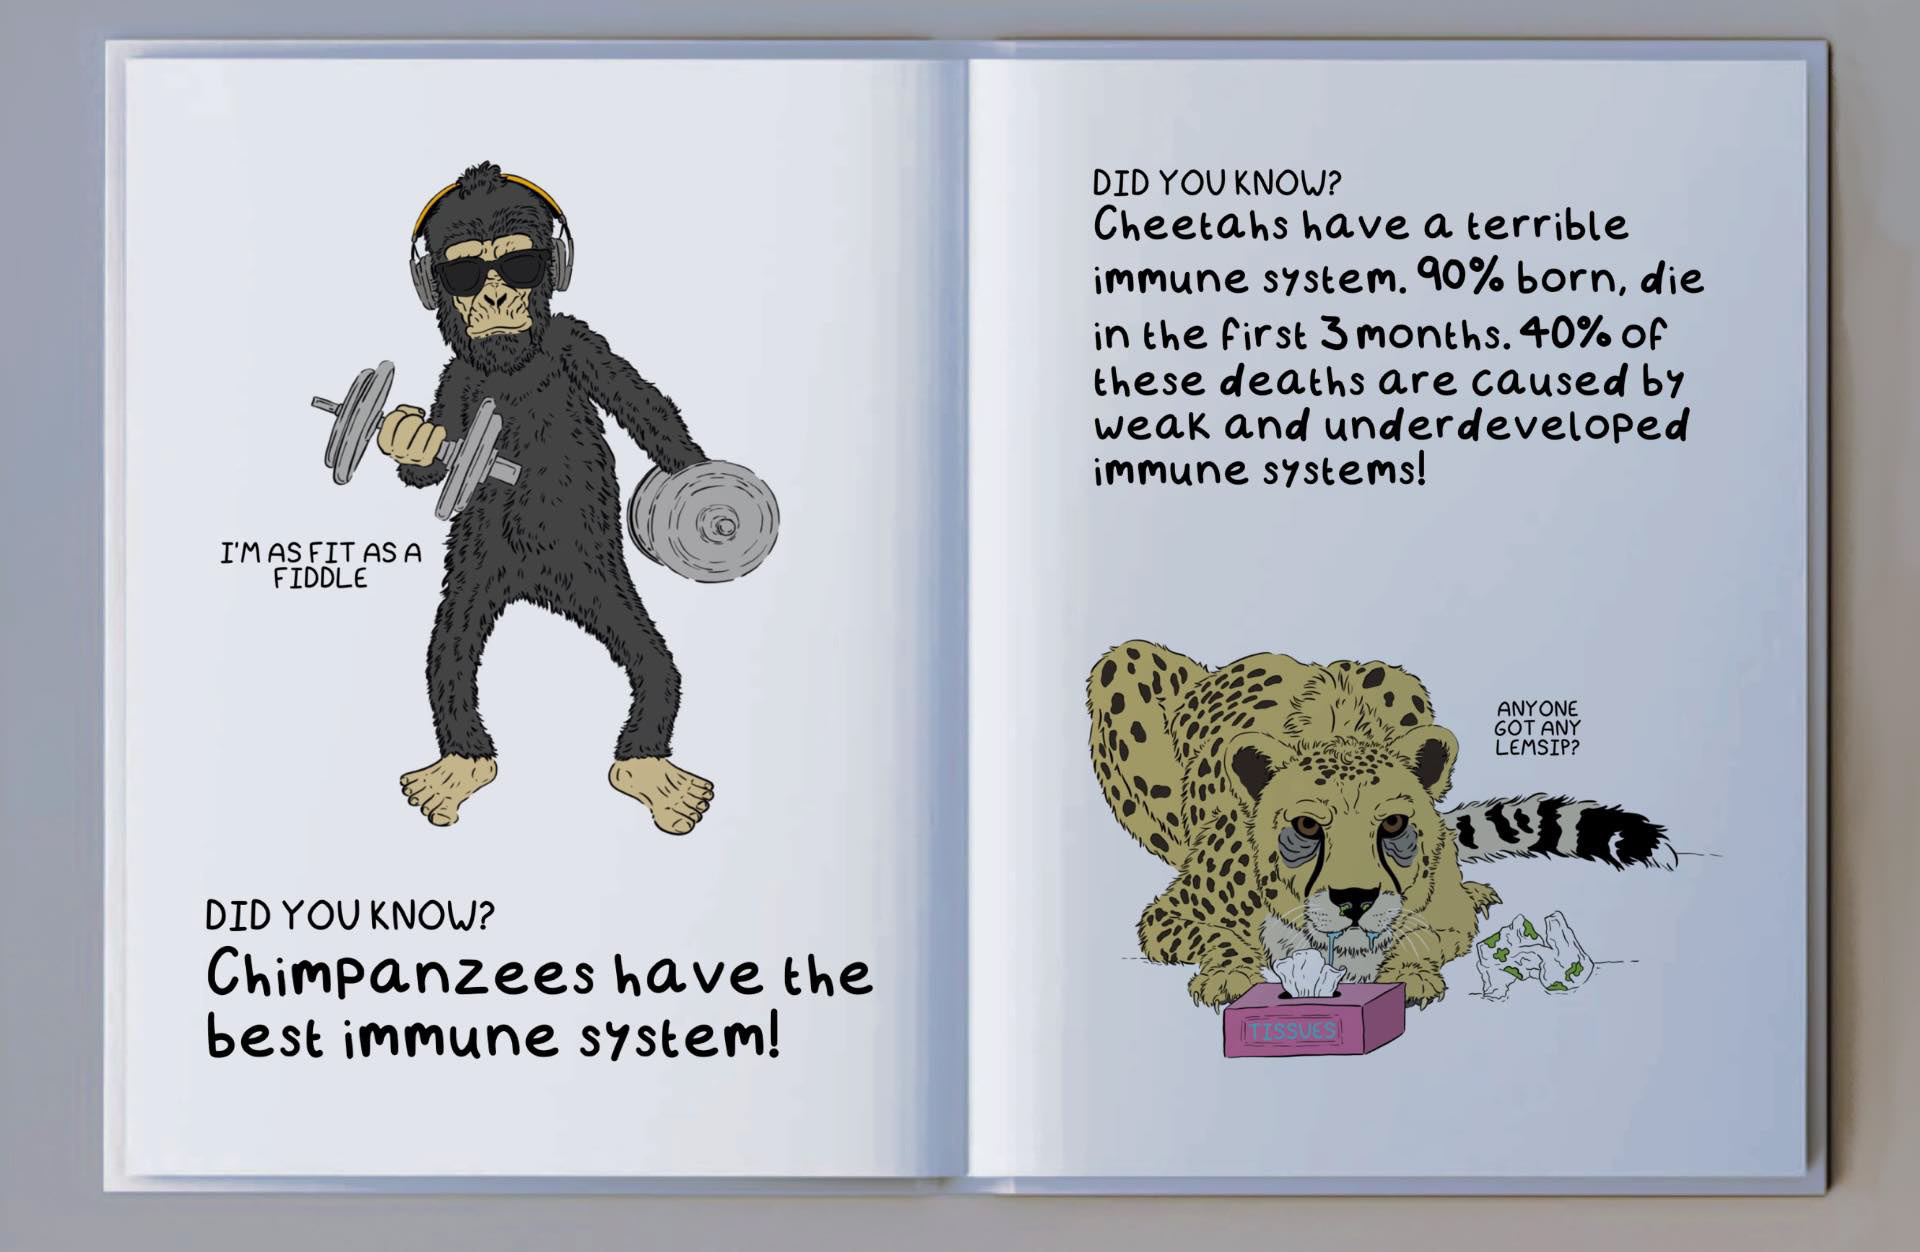 I'M AS FIT AS A
FIDDLE
DID YOU KNOW?
Chimpanzees have the
best immune system!
DID YOU KNOW?
Cheetahs have a terrible
immune system. 90% born, die
in the first 3 months. 40% of
these deaths are caused by
weak and underdeveloped
immune systems!
ANYONE
GOT ANY
LEMSIP?
TISSUES